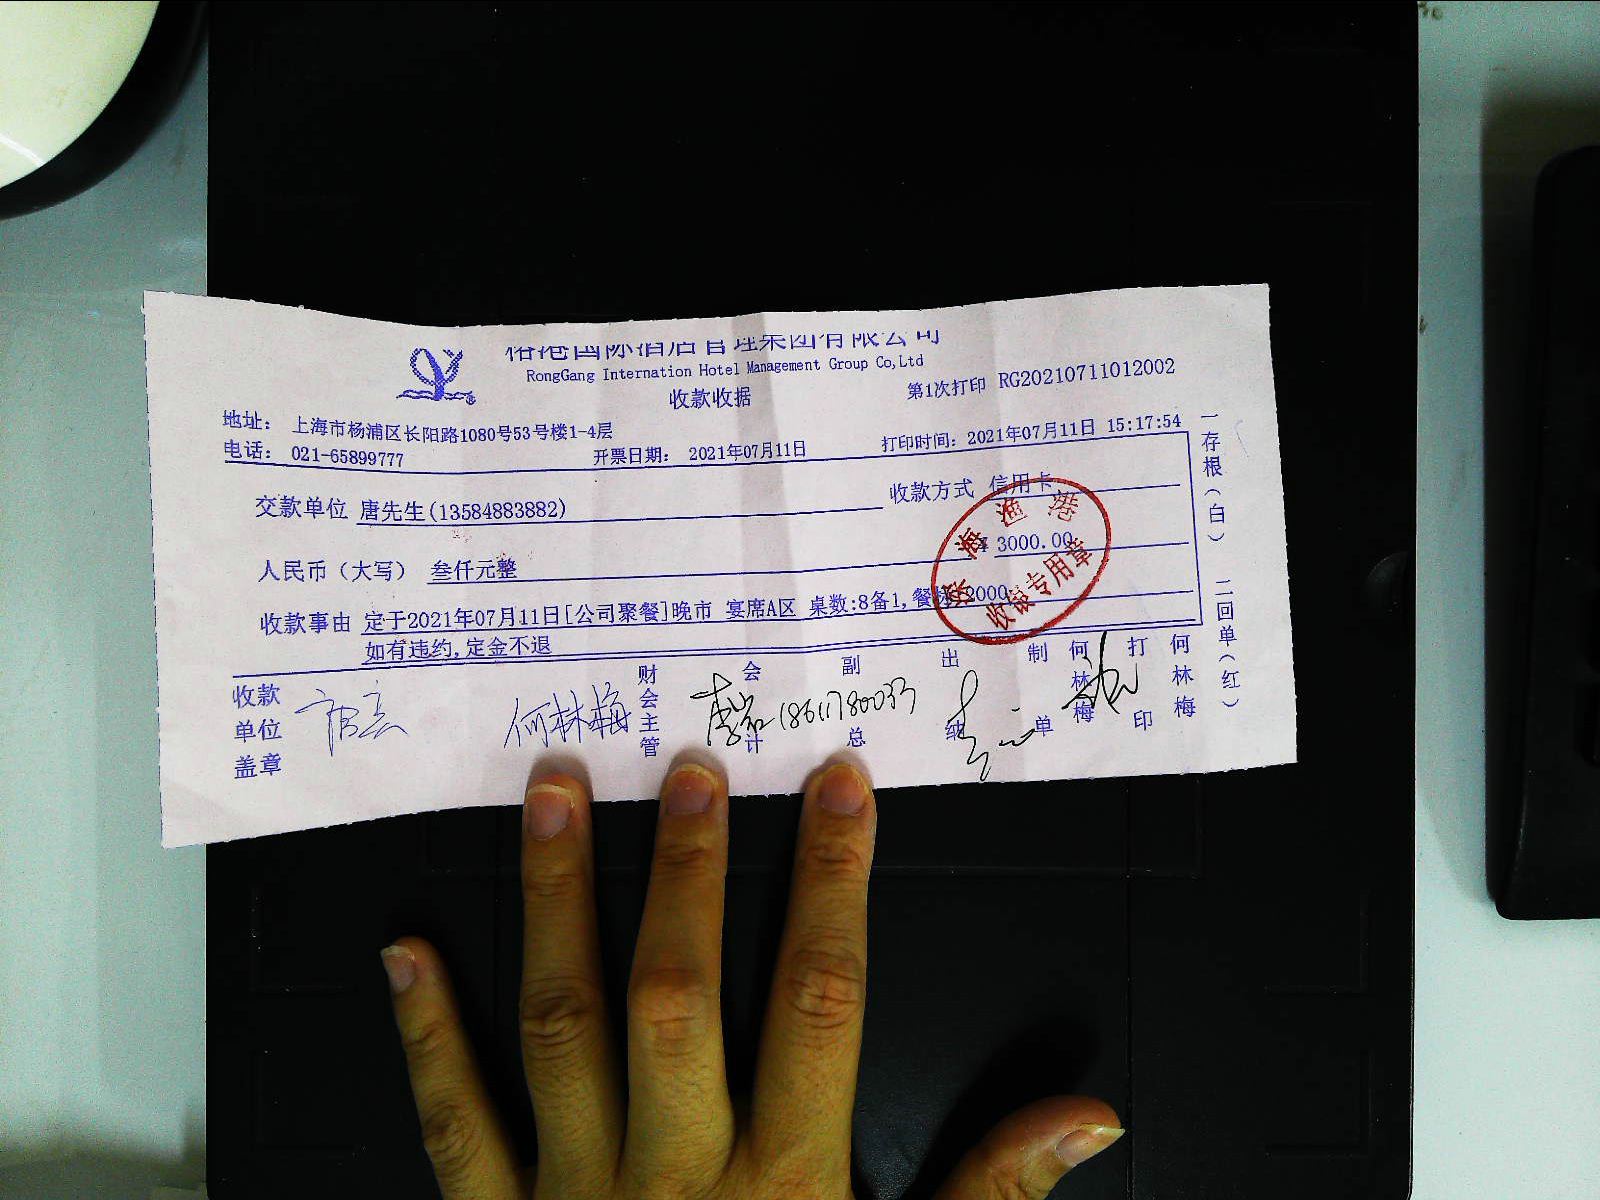 国际酒店管理集团有限公司
RongGang Internation Hotel Management Group Co,Ltd
收款收据
第1次打印 RG20210711012002
地址: 上海市杨浦区长阳路1080号53号楼1-4层
电话: 021-65899777
开票日期: 2021年07月11日
打印时间: 2021年07月11日 15:17:54
交款单位 唐先生(13584883882)
收款方式 信用卡
人民币(大写) 叁仟元整
¥ 3000.00
收款事由 定于2021年07月11日[公司聚餐]晚市 宴席A区 桌数:8备1,餐标:2000,
如有违约,定金不退
收款单位盖章
何林梅
财会主管
会计
18611780033
副总
出纳
制单
何林梅
打印
何林梅
一存根(白) 二回单(红)
海渔港
收据专用章